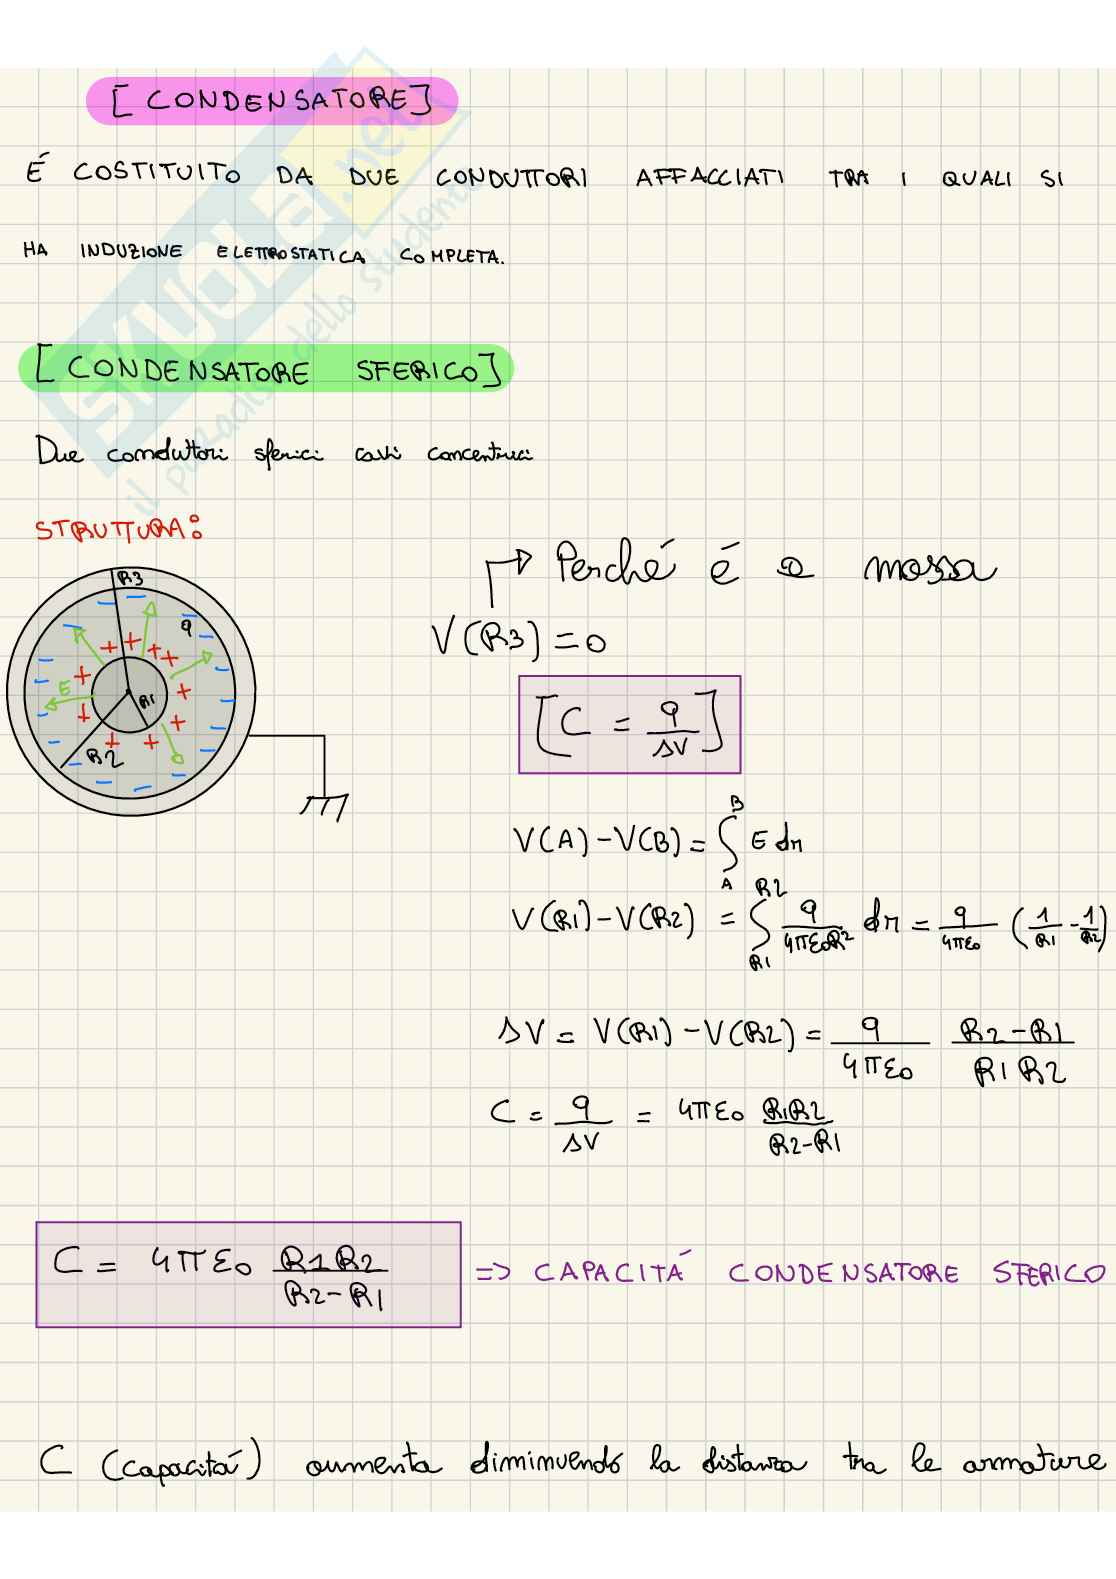 [ CONDENSATORE]
É COSTITUITO DA DUE CONDUTTORI AFFACCIATI TRA I QUALI SI
HA INDUZIONE ELETTROSTATICA COMPLETA.
[ CONDENSATORE SFERICO]
Due conduttori sferici cavi concentrici
STRUTTURA:
R3
q
E
R1
R2
Perché é a massa
V(R3)=0
[C = q/ΔV]
V(A)-V(B)= ∫_A^B E dr
V(R1)-V(R2) = ∫_R1^R2 q/4πε0R² dr = q/4πε0 (1/R1 - 1/R2)
ΔV = V(R1)-V(R2)= q/4πε0 R2-R1/R1R2
C = q/ΔV = 4πε0 R1R2/R2-R1
C = 4πε0 R1R2/R2-R1 => CAPACITÁ CONDENSATORE SFERICO
C (capacitá) aumenta diminuendo la distanza tra le armature
SKUOLA.net
il paradiso dello studente